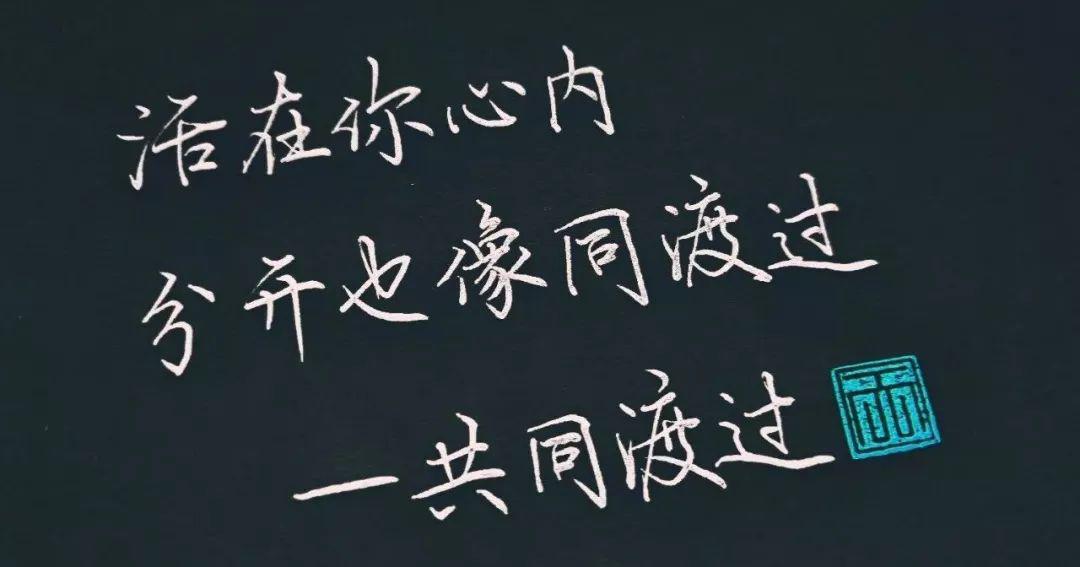 活在你心内
分开也像同渡过
—共同渡过